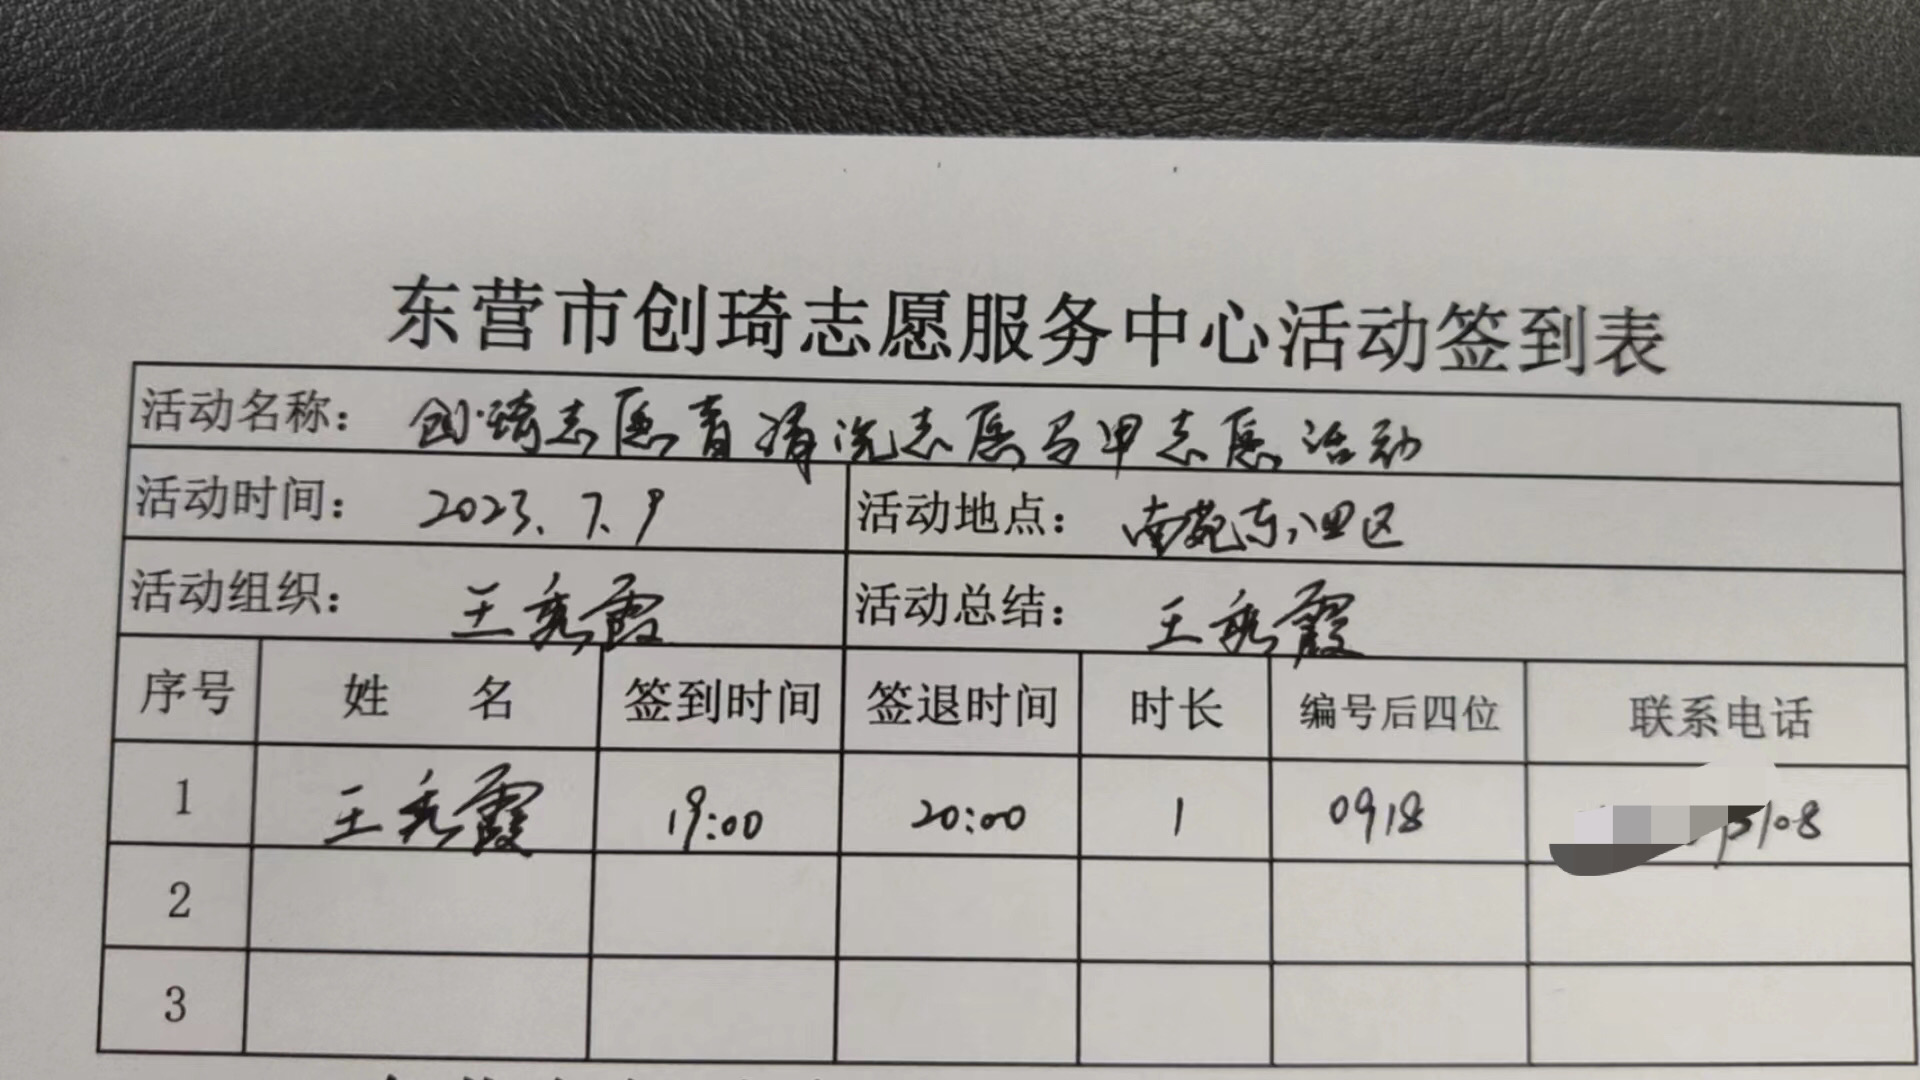 东营市创琦志愿服务中心活动签到表
活动名称： 创琦志愿者清洗志愿马甲志愿活动
活动时间： 2023.7.9 活动地点： 南苑东八四区
活动组织： 王秀霞 活动总结： 王秀霞
序号 姓 名 签到时间 签退时间 时长 编号后四位 联系电话
1 王秀霞 19:00 20:00 1 0918 3108
2
3